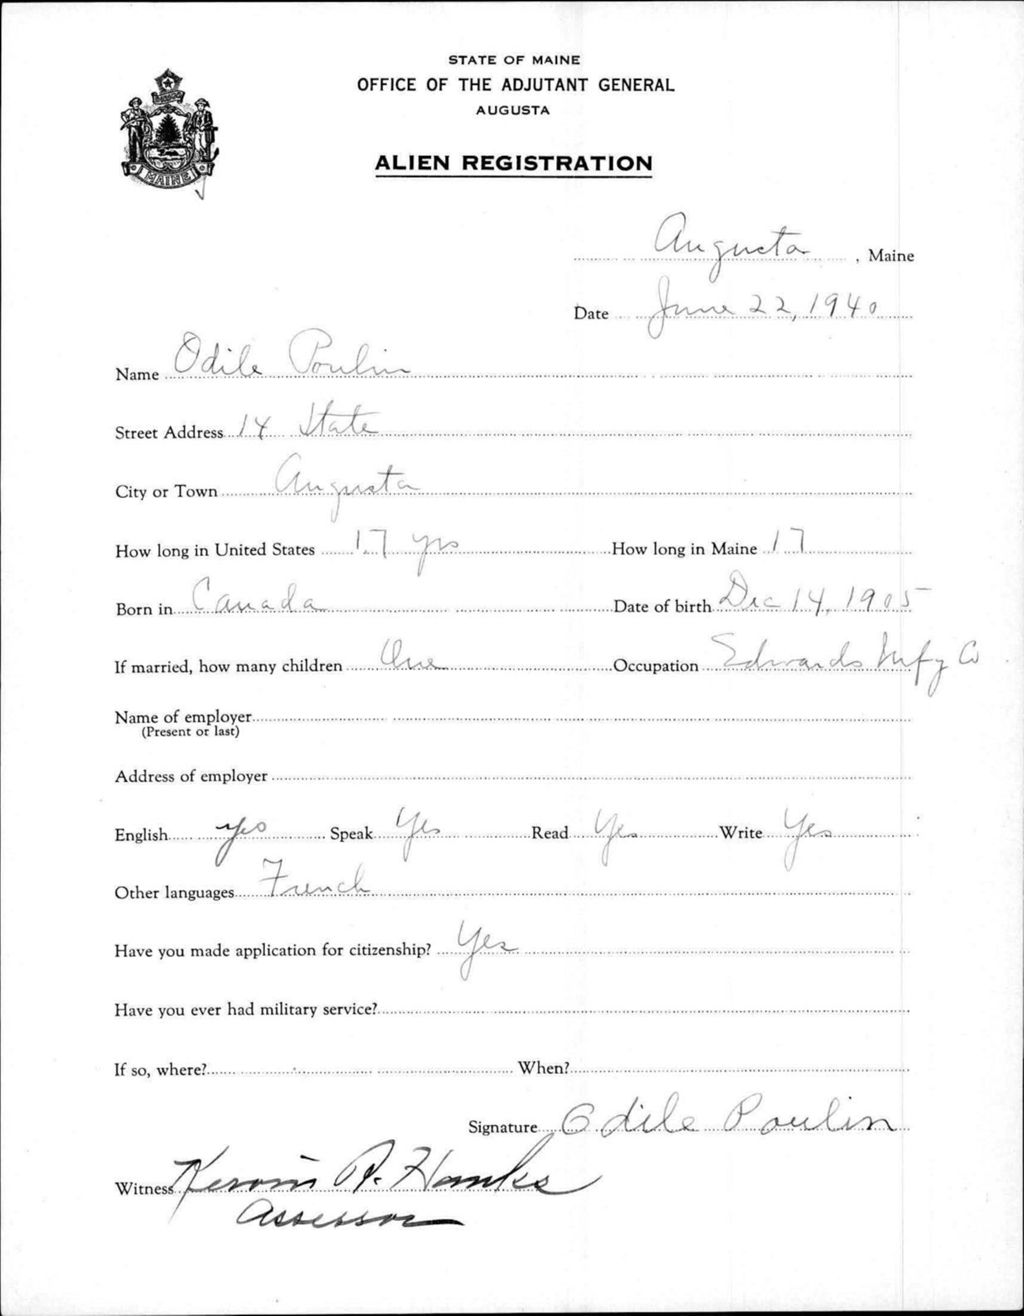 STATE OF MAINE
OFFICE OF THE ADJUTANT GENERAL
AUGUSTA
ALIEN REGISTRATION
MAINE
Augusta, Maine
Date June 22, 1940
Name Odile Poulin
Street Address 14 State
City or Town Augusta
How long in United States 17 yrs How long in Maine 17
Born in Canada Date of birth Dec 14, 1905
If married, how many children One Occupation Edwards Mfg Co
Name of employer
(Present or last)
Address of employer
English yes Speak Yes Read Yes Write Yes
Other languages French
Have you made application for citizenship? Yes
Have you ever had military service?
If so, where? When?
Signature Odile Poulin
Witness R. Hanks
Assessor